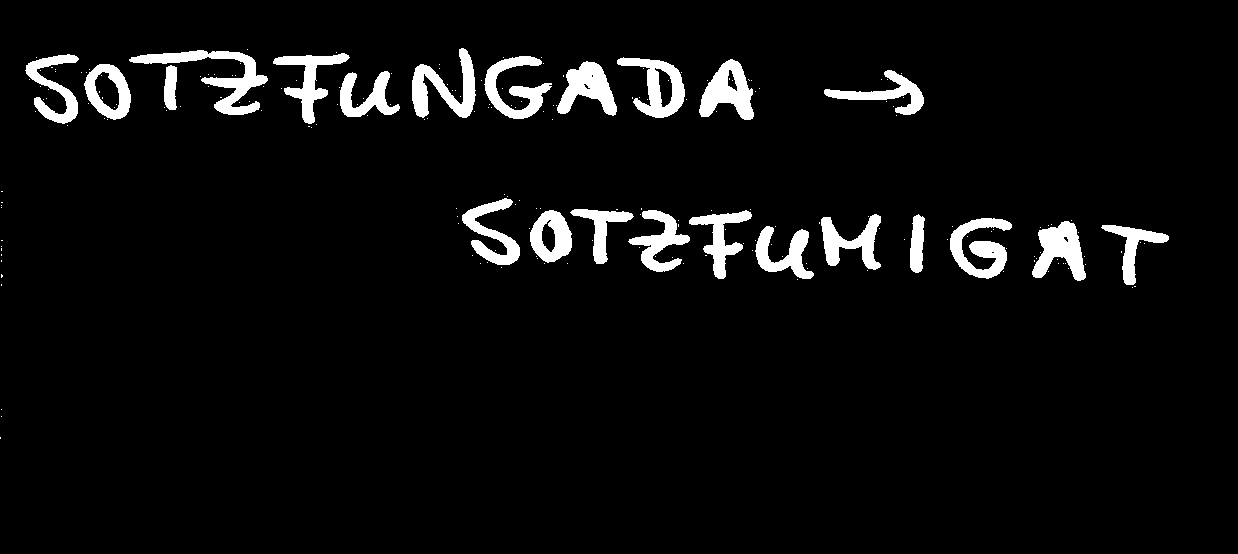 SOTZFUNGADA →
SOTZFUMIGAT